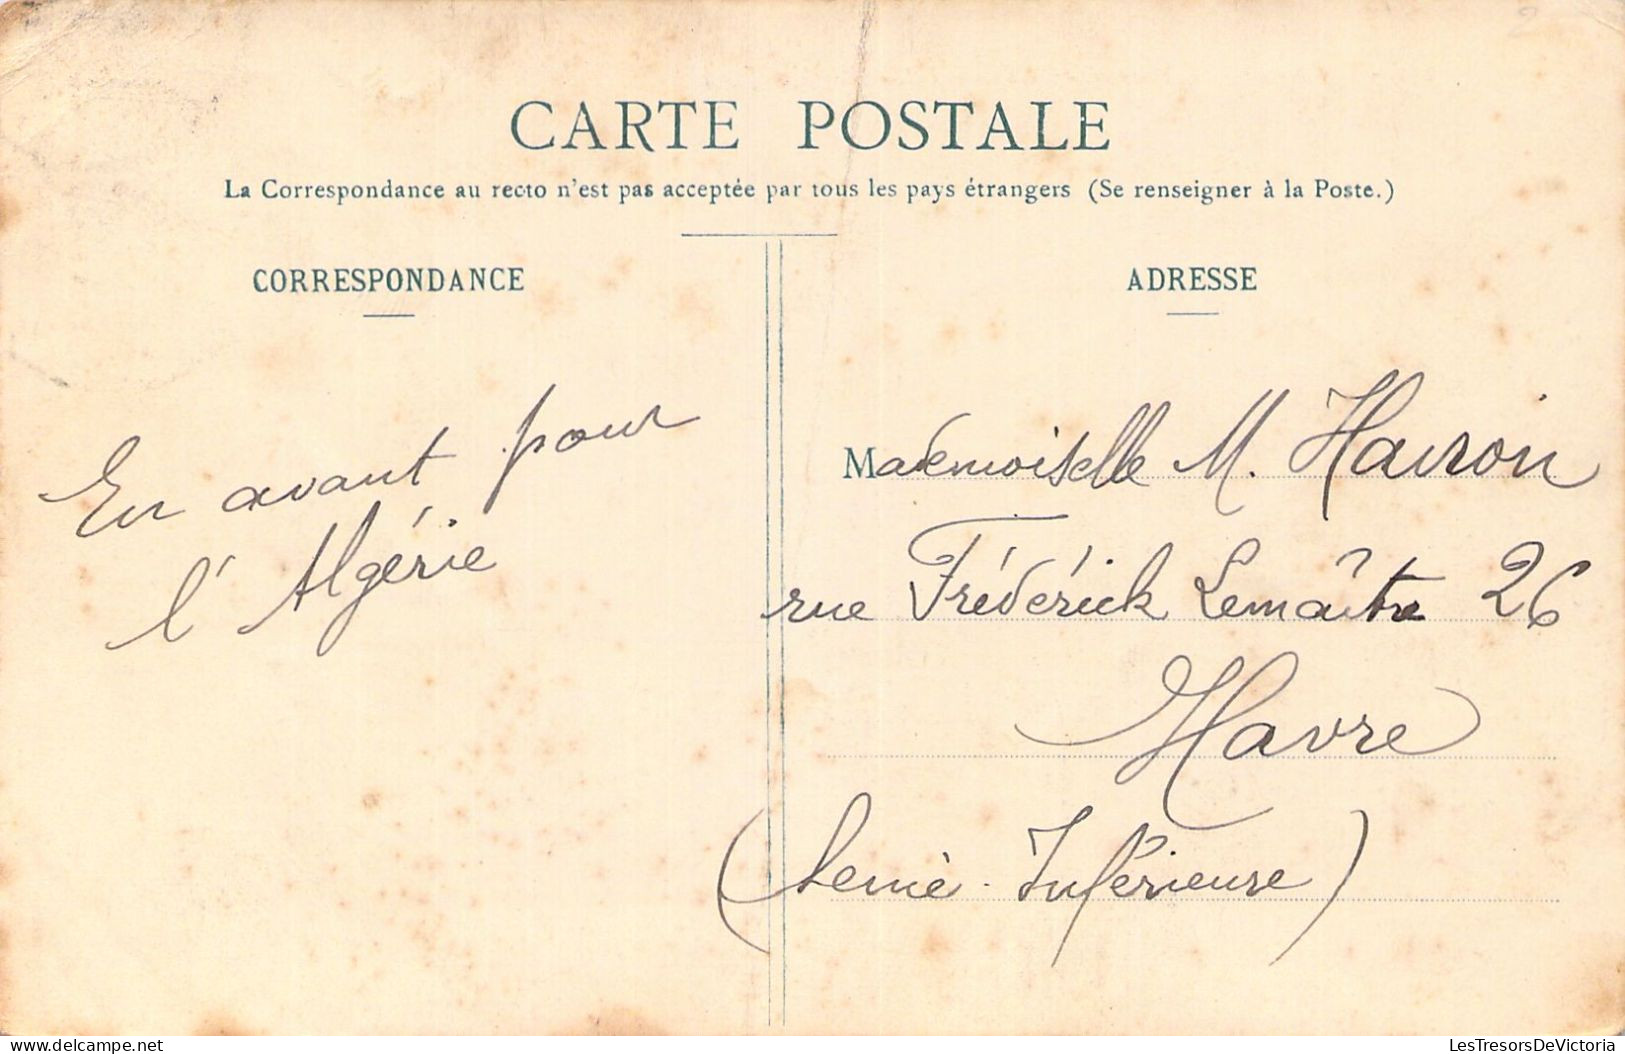 CARTE POSTALE
La Correspondance au recto n'est pas acceptée par tous les pays étrangers (Se renseigner à la Poste.)
CORRESPONDANCE
En avant pour
l'Algérie
ADRESSE
Mademoiselle M.
rue Frédérick Lemaître 26
Havre
(Seine-Inférieure)
delcampe.net
LesTresorsDeVictoria